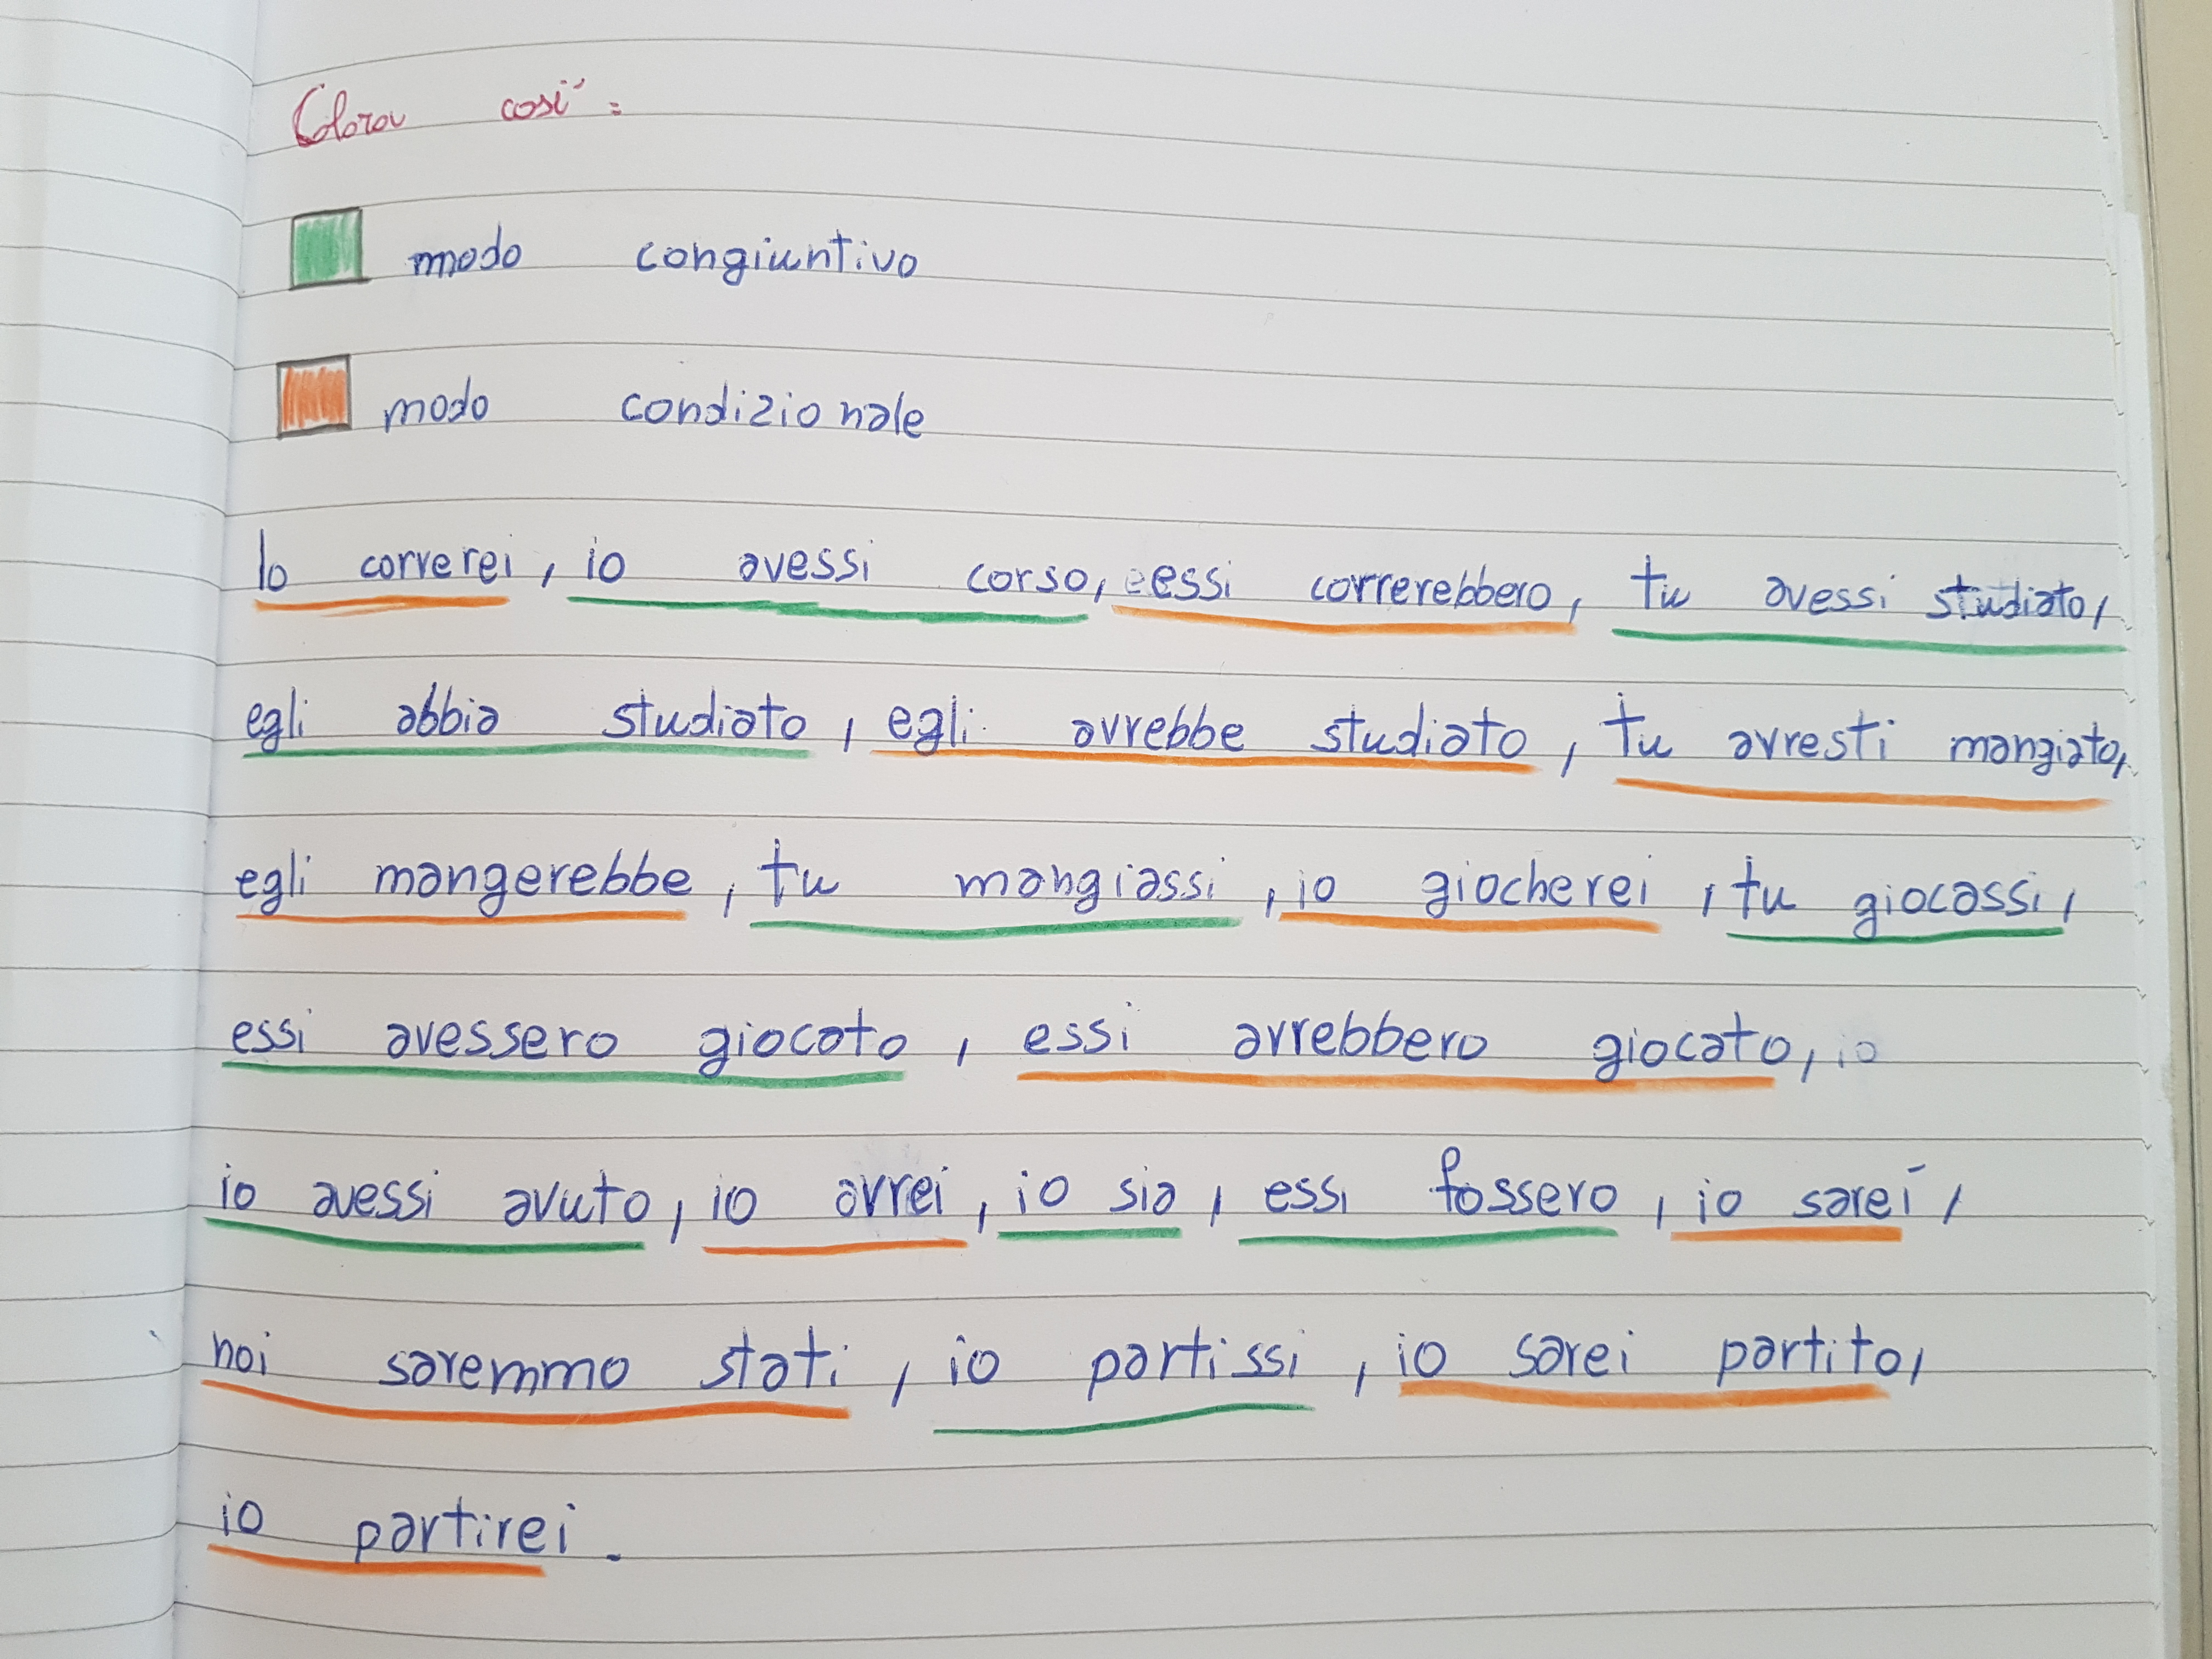 Colora così:
modo congiuntivo
modo condizionale
Io correrei, io avessi corso, essi correrebbero, tu avessi studiato,
egli abbia studiato, egli avrebbe studiato, tu avresti mangiato,
egli mangerebbe, tu mangiassi, io giocherei, tu giocassi,
essi avessero giocato, essi avrebbero giocato, io
io avessi avuto, io avrei, io sia, essi fossero, io sarei,
noi saremmo stati, io partissi, io sarei partito,
io partirei.